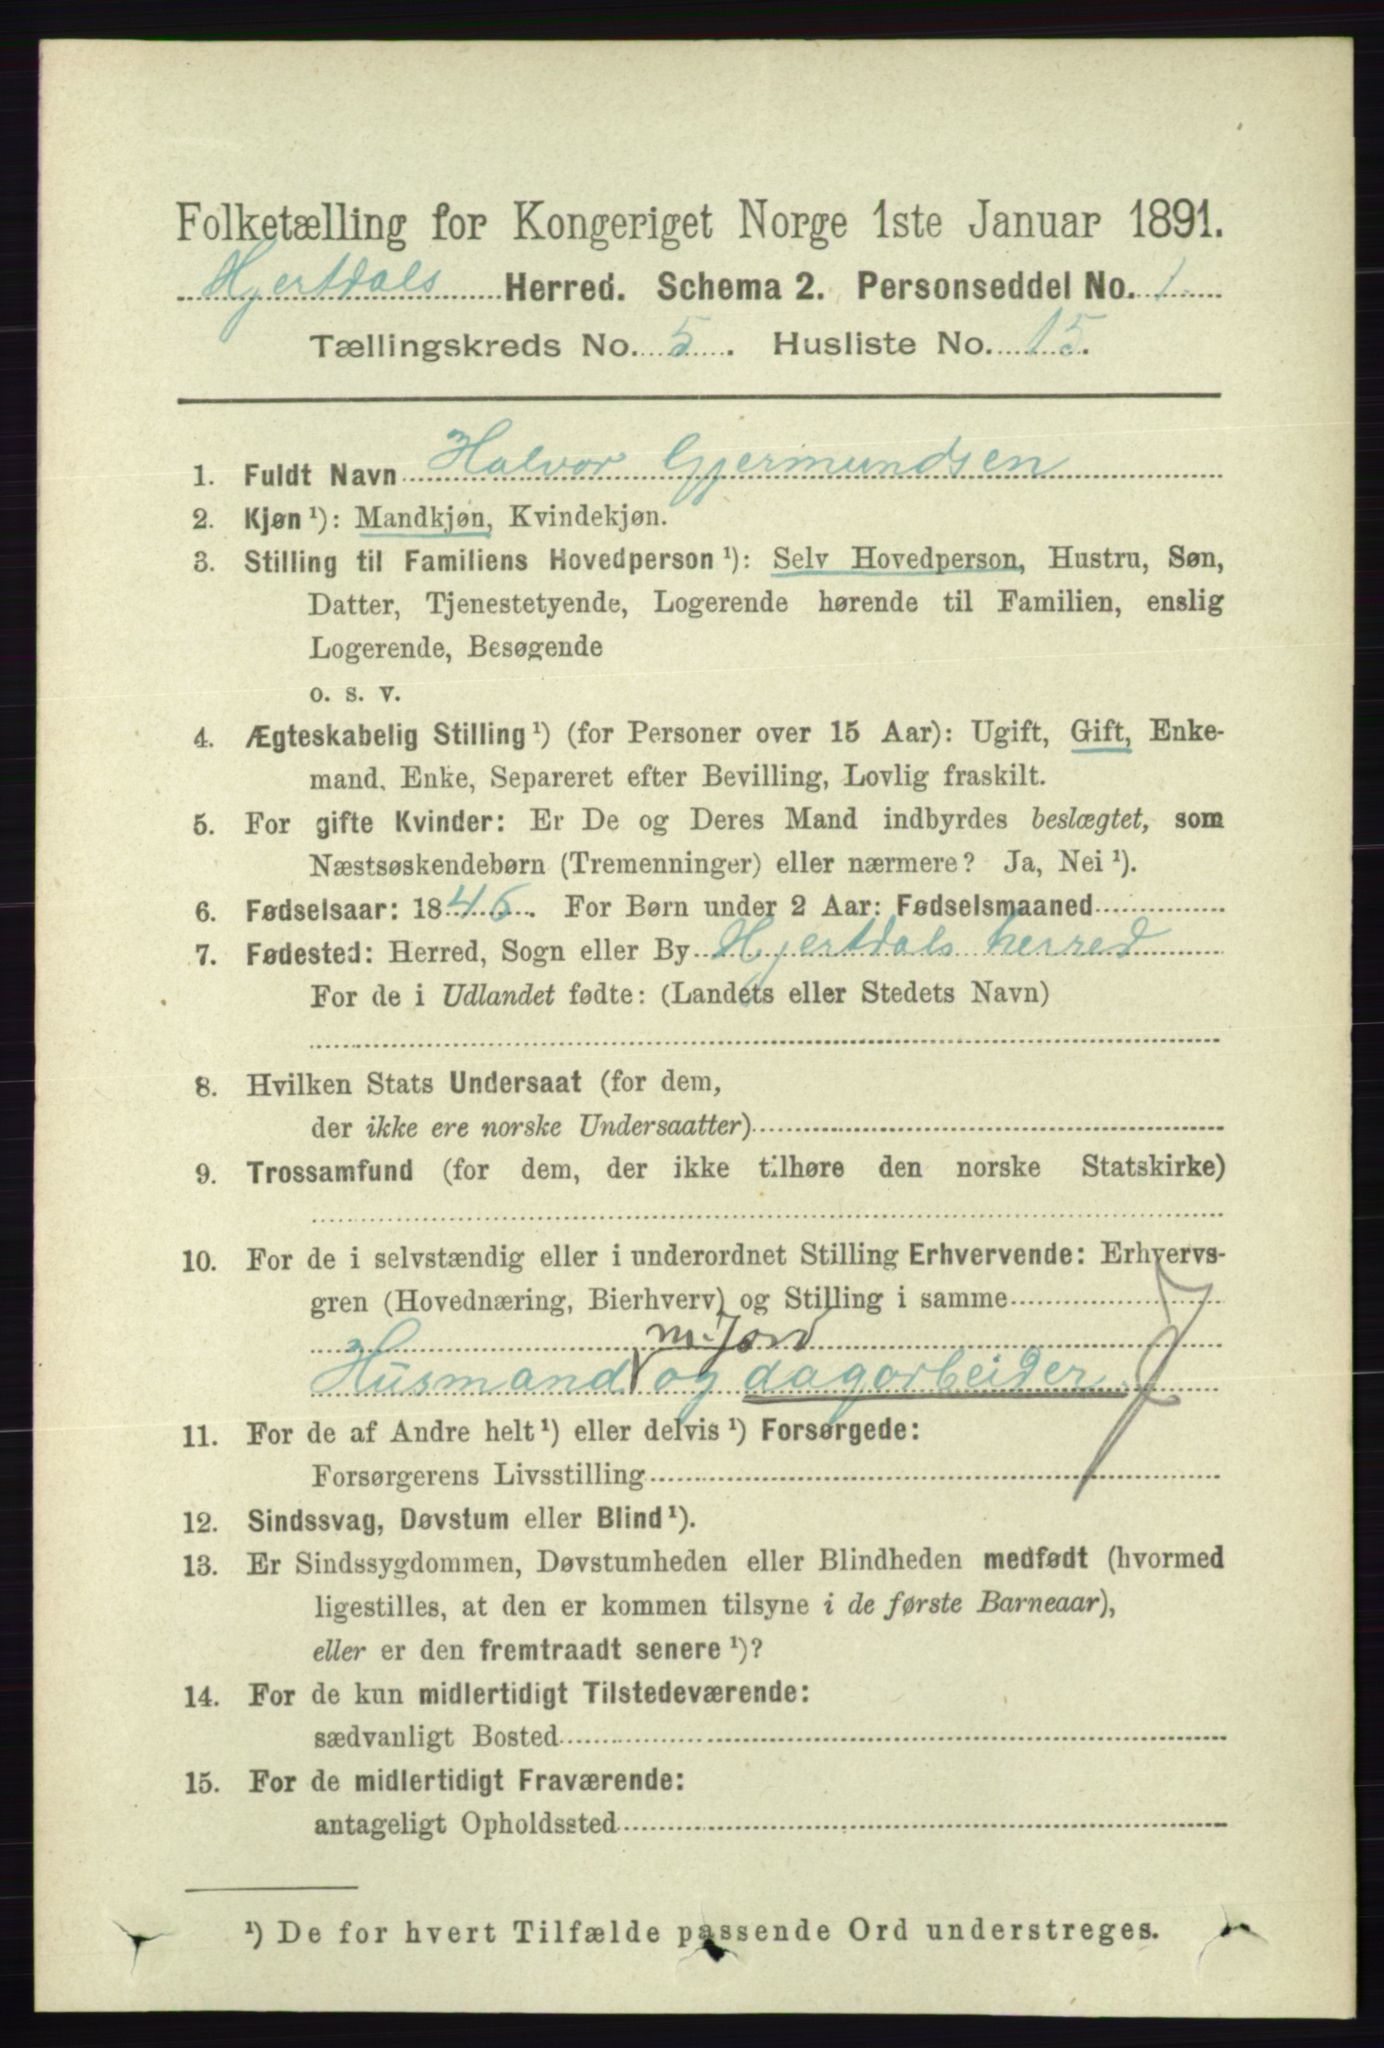 Folketælling for Kongeriget Norge 1ste Januar 1891.
Hjertdals Herred. Schema 2. Personseddel No. 1.
Tællingskreds No. 5. Husliste No. 15.
1. Fuldt Navn Halvor Gjermundsen
2. Kjøn ¹): Mandkjøn, Kvindekjøn.
3. Stilling til Familiens Hovedperson ¹): Selv Hovedperson, Hustru, Søn,
Datter, Tjenestetyende, Logerende hørende til Familien, enslig
Logerende, Besøgende
o. s. v.
4. Ægteskabelig Stilling ¹) (for Personer over 15 Aar): Ugift, Gift, Enke-
mand, Enke, Separeret efter Bevilling, Lovlig fraskilt.
5. For gifte Kvinder: Er De og Deres Mand indbyrdes beslægtet, som
Næstsøskendebørn (Tremenninger) eller nærmere? Ja, Nei ¹).
6. Fødselsaar: 1846. For Børn under 2 Aar: Fødselsmaaned
7. Fødested: Herred, Sogn eller By Hjertdals herred
For de i Udlandet fødte: (Landets eller Stedets Navn)
8. Hvilken Stats Undersaat (for dem,
der ikke ere norske Undersaatter)
9. Trossamfund (for dem, der ikke tilhøre den norske Statskirke)
10. For de i selvstændig eller i underordnet Stilling Erhvervende: Erhvervs-
gren (Hovednæring, Bierhverv) og Stilling i samme
m. Jord
Husmand og dagarbeider
11. For de af Andre helt ¹) eller delvis ¹) Forsørgede:
Forsørgerens Livsstilling
12. Sindssvag, Døvstum eller Blind ¹).
13. Er Sindssygdommen, Døvstumheden eller Blindheden medfødt (hvormed
ligestilles, at den er kommen tilsyne i de første Barneaar),
eller er den fremtraadt senere ¹)?
14. For de kun midlertidigt Tilstedeværende:
sædvanligt Bosted
15. For de midlertidigt Fraværende:
antageligt Opholdssted
¹) De for hvert Tilfælde passende Ord understreges.